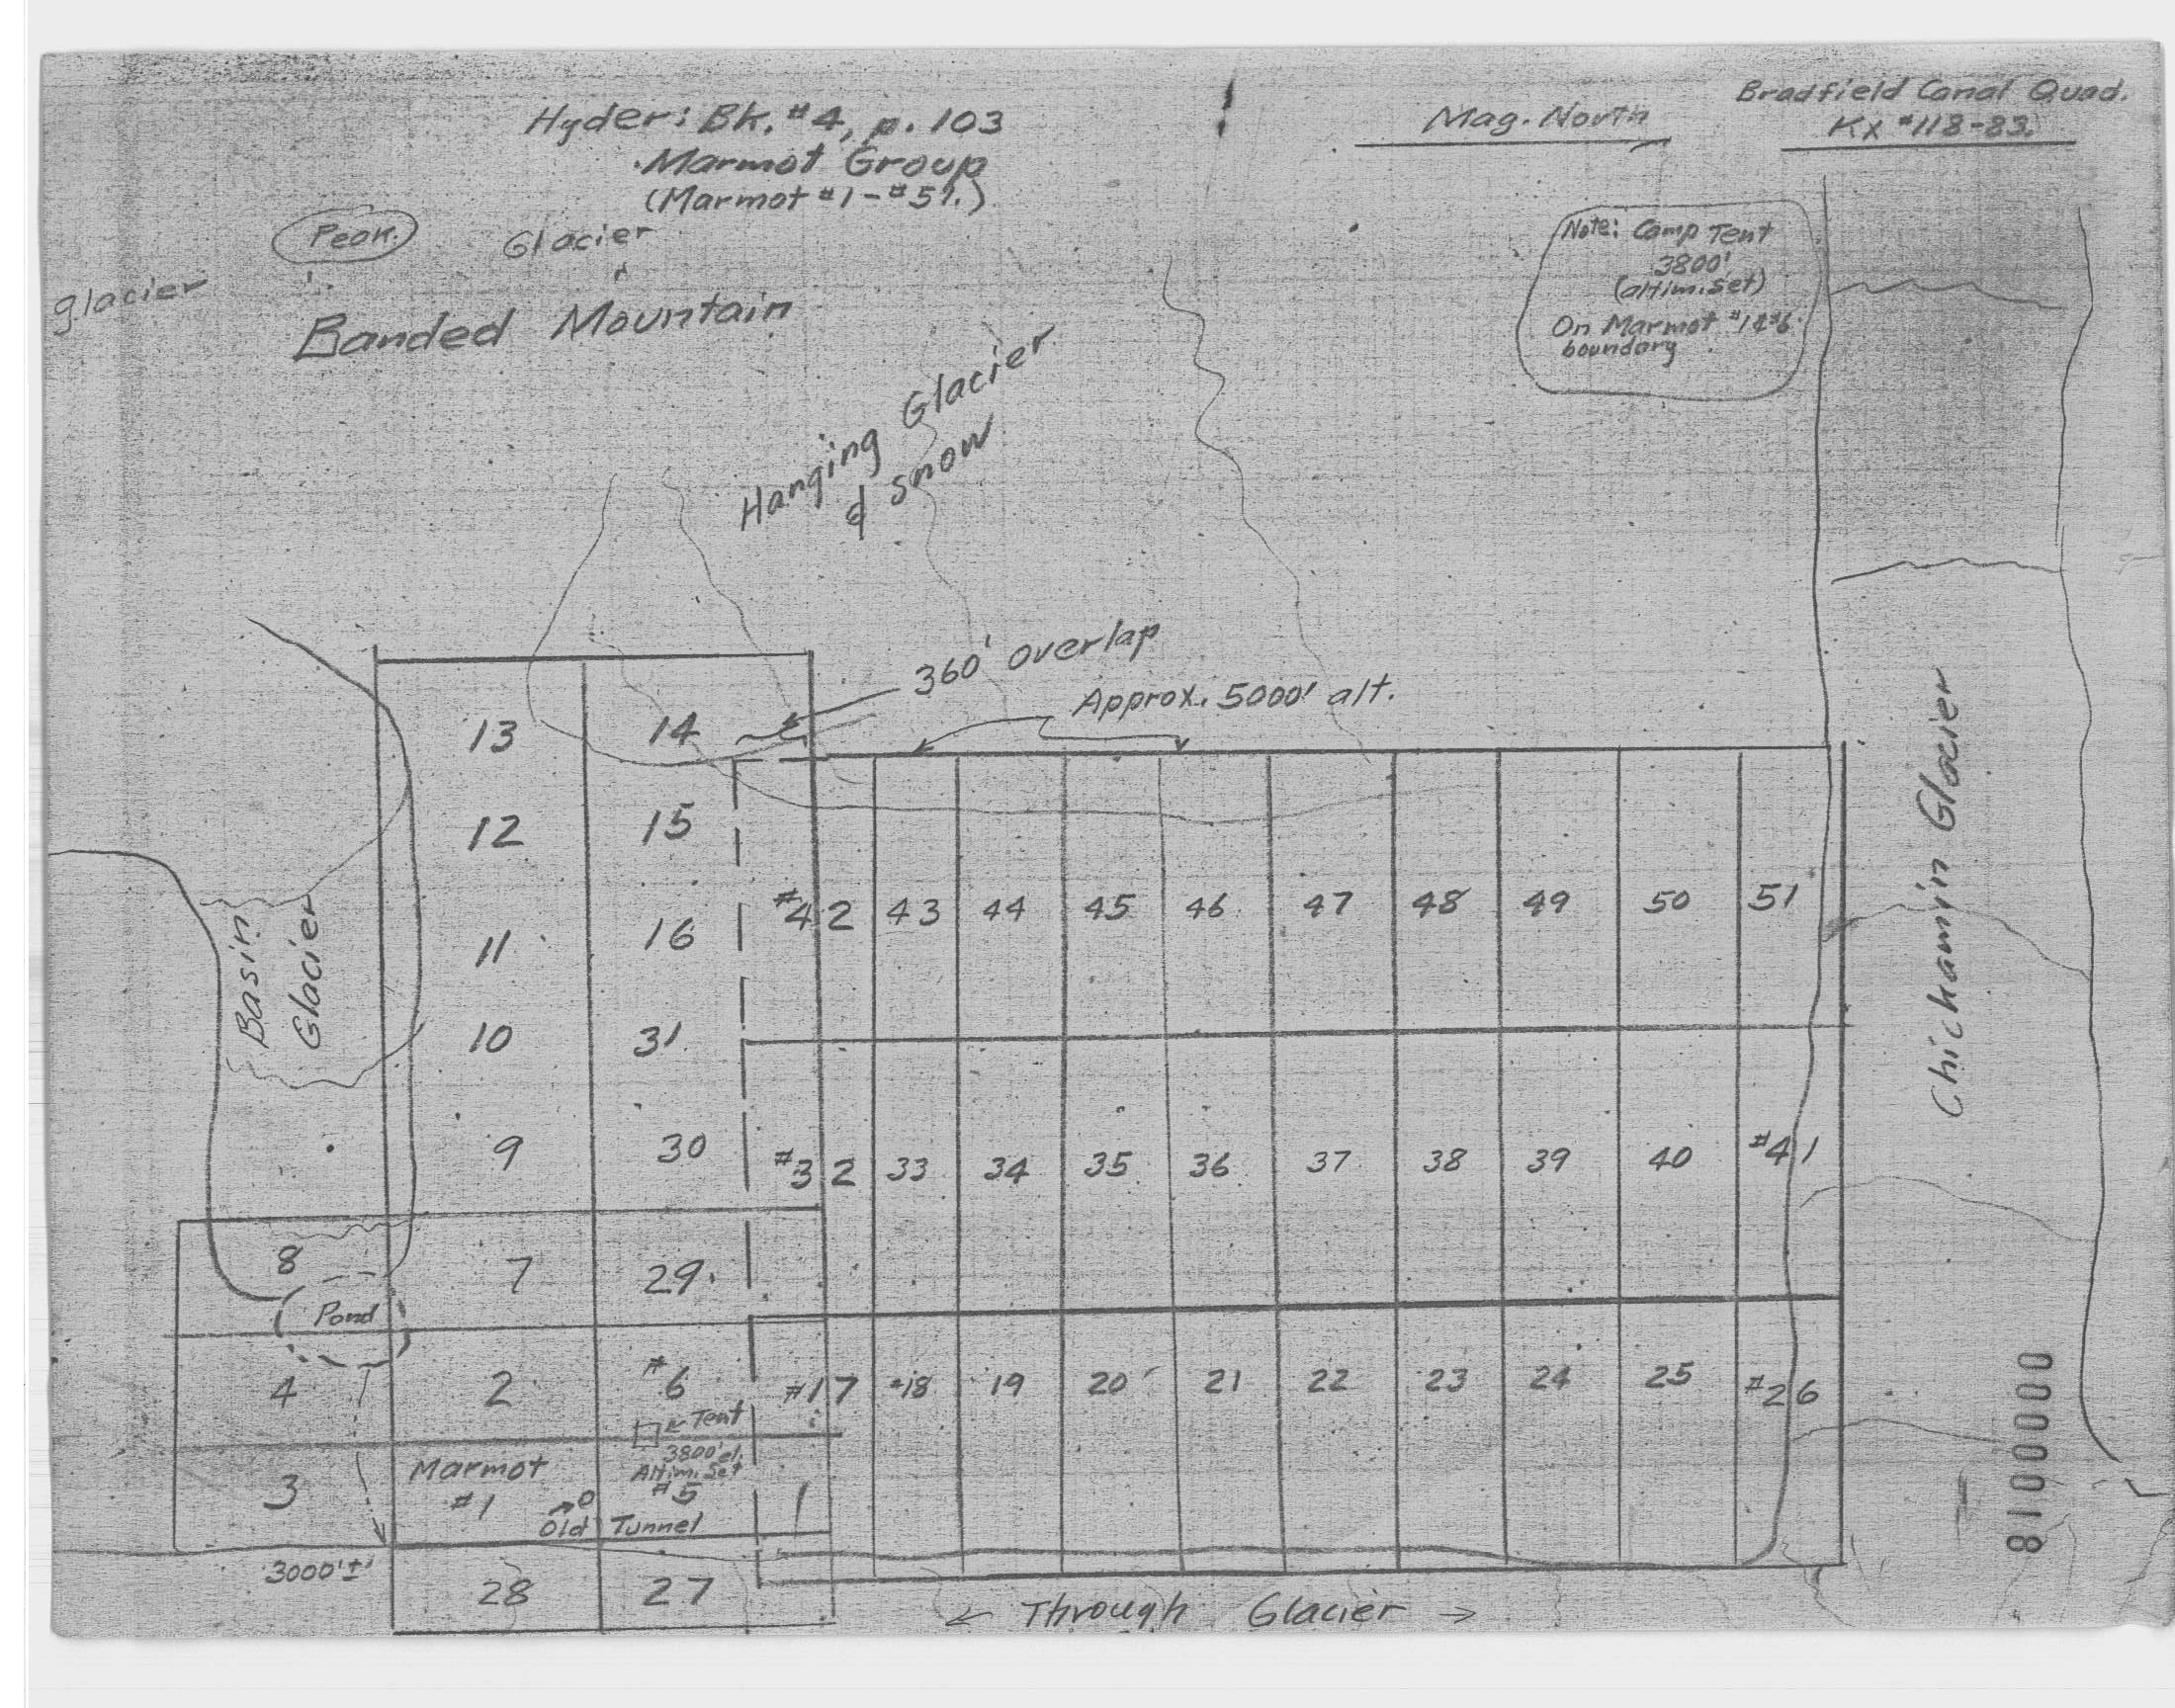 Hyder: Bk. #4, p. 103
Marmot Group
(Marmot #1-#51.)
Mag. North
Bradfield Canal Quad.
Kx #118-83.
Peak.
Glacier
Glacier
Banded Mountain
Note: Camp Tent
3800'
(altim. set)
On Marmot
boundary
Hanging Glacier
& snow
360' overlap
Approx. 5000' alt.
13 14
12 15
#42 43 44 45 46 47 48 49 50 51
11 16
Basin
Glacier
10 31
Chickamin Glacier
9 30
#32 33 34 35 36 37 38 39 40 #41
8 7 29
Pond
4 2 #6
#17 #18 19 20 21 22 23 24 25 #26
Tent
3800' el.
Altim. Set
3 Marmot
#1 #5
Old Tunnel
3000'±
28 27
← Through Glacier →
8100000